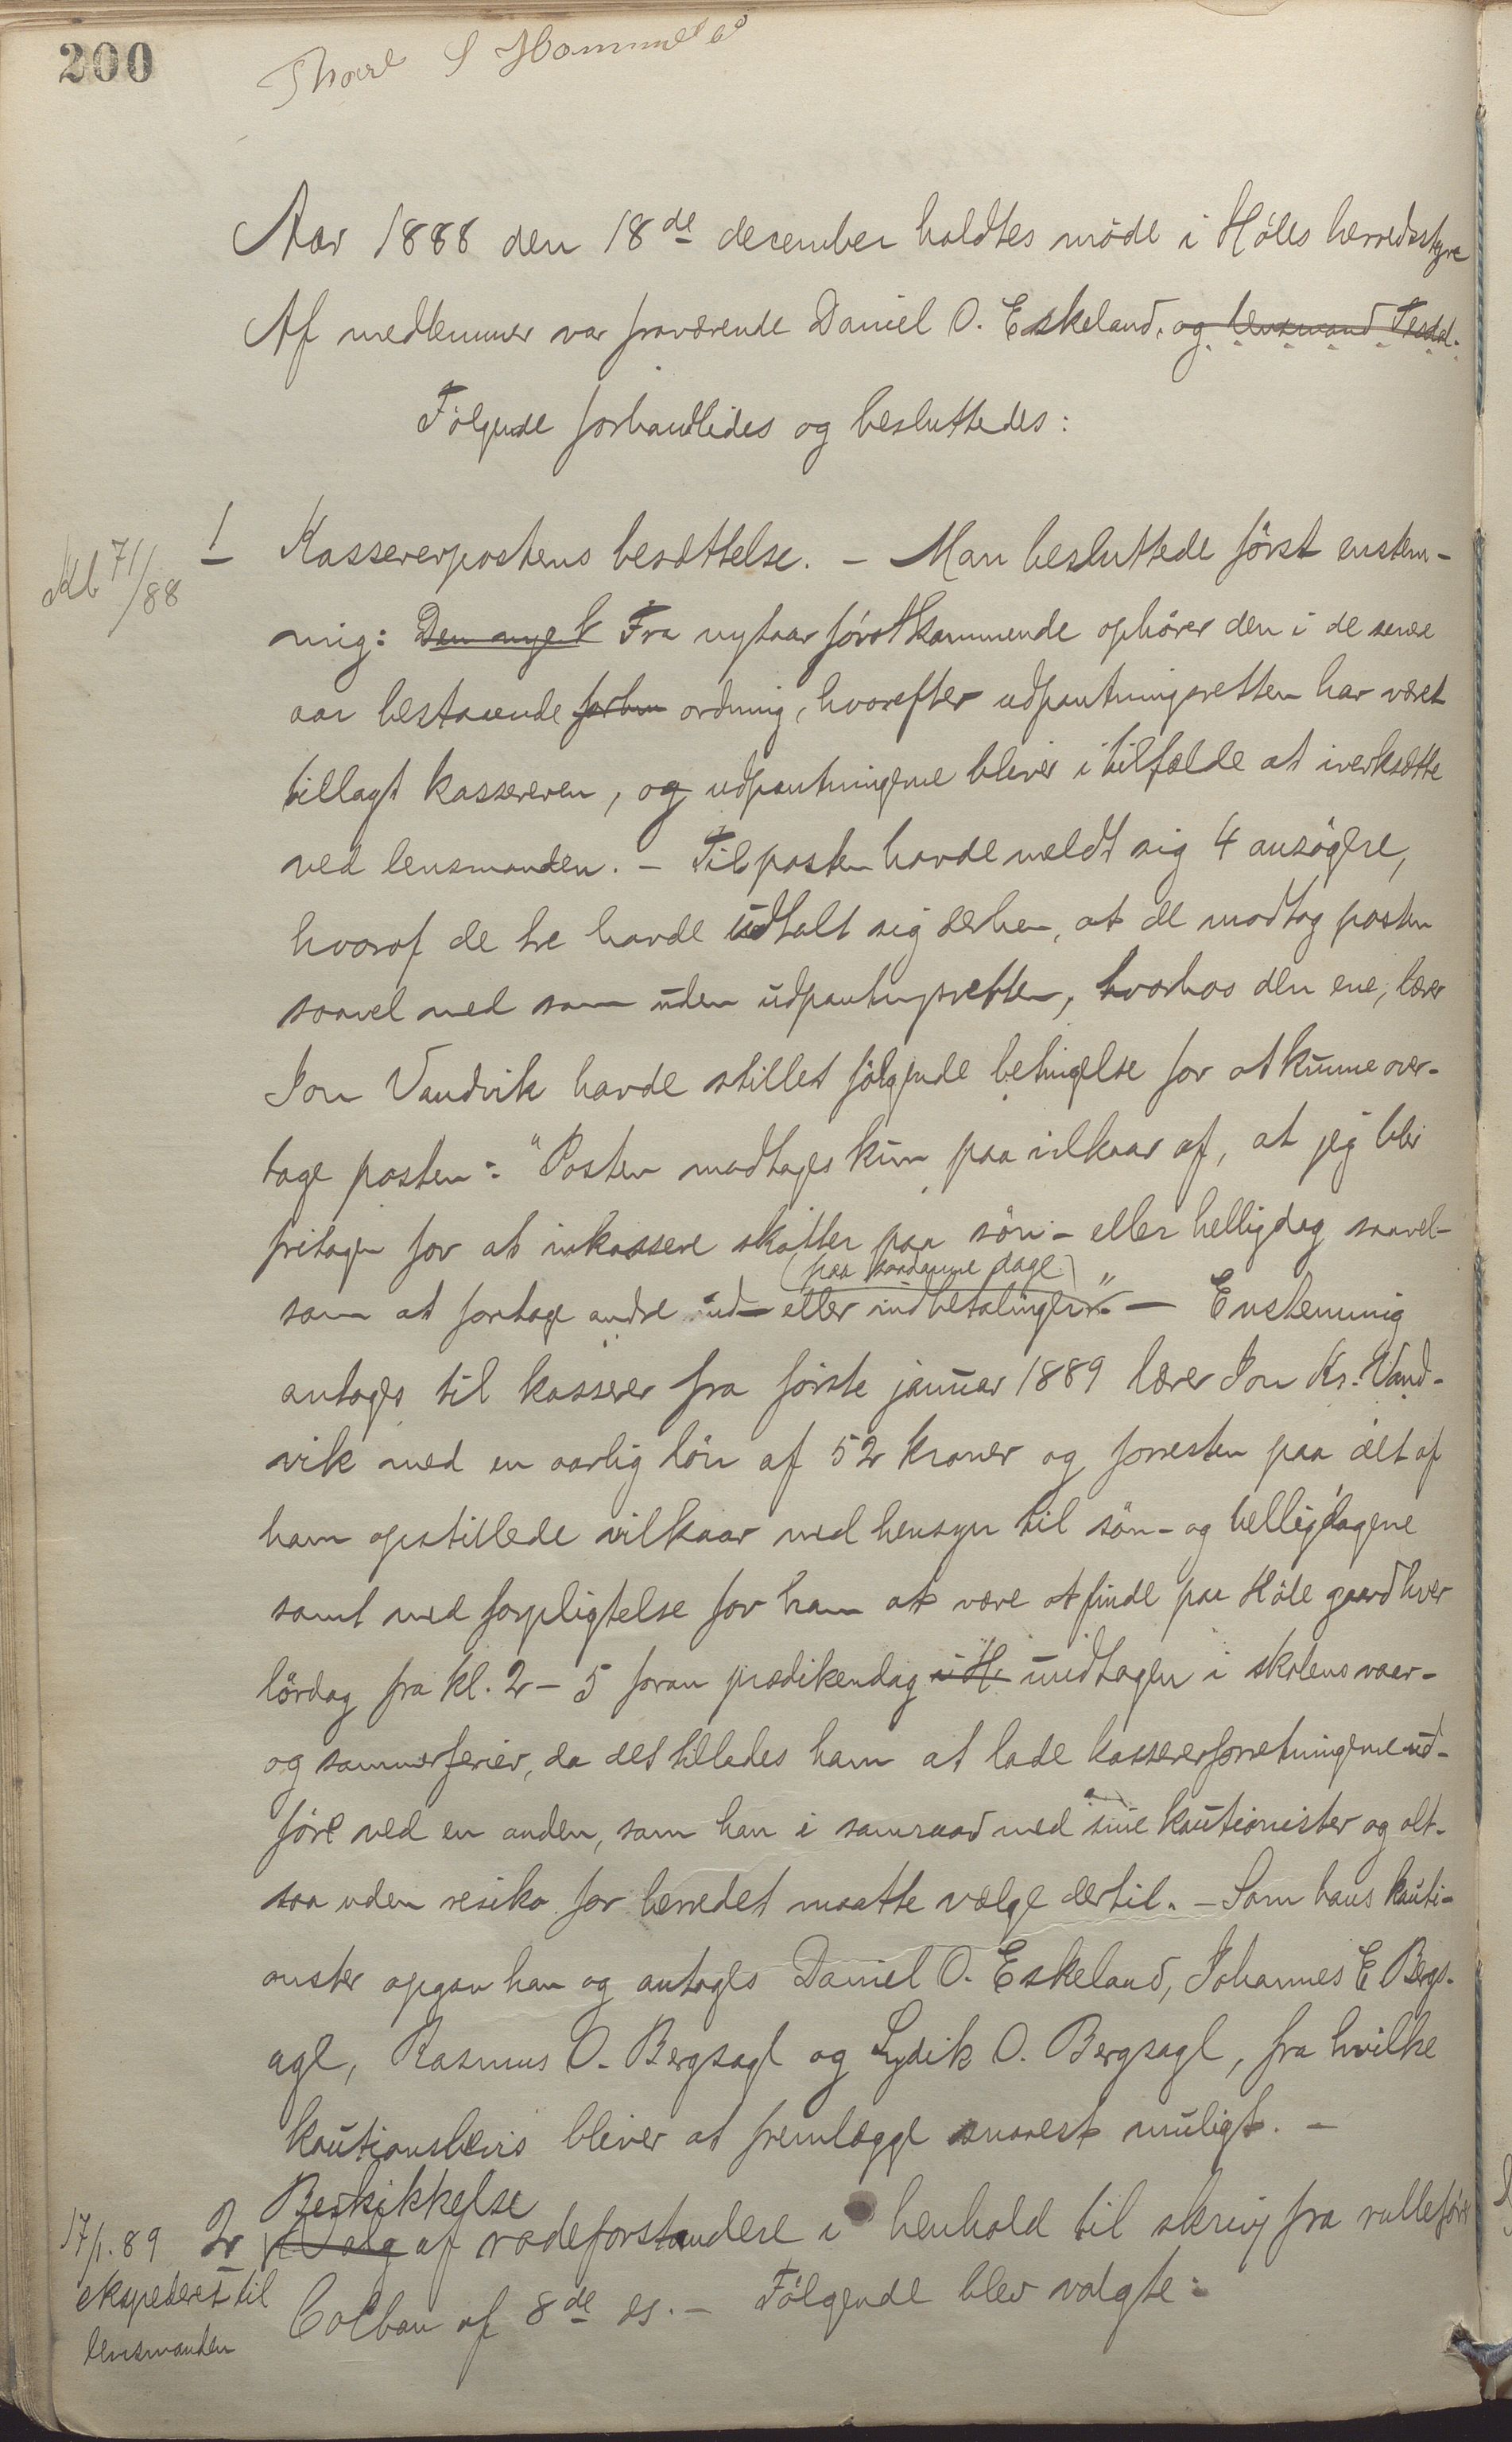 200
Thore S Hommeland
Aar 1888 den 18de december holdtes möde i Höles herredsstyre
Af medlemmer var fraværende Daniel O. Eskeland. og lensmand Tesdal.
Fölgende forhandledes og besluttedes:
Kb 71/88
1 Kassererpostens besættelse. – Man besluttede först enstem-
mig: Den nye k Fra nytaar förstkommende ophörer den i de senere
aar bestaaende forhen ordning, hvorefter udpantningsretten har været
tillagt kassereren, og udpantningerne bliver i tilfælde at iverksætte
ved lensmanden. – Til posten havde meldt sig 4 ansögere,
hvoraf de tre havde udtalt sig derhen, at de modtog posten
saavel med som uden udpantningsretten, hvorhos den ene, lærer
Jon Vandvik havde stillet fölgende betingelse for at kunne over-
tage posten: "Posten modtages kun paa vilkaar af, at jeg blir
fritagen for at inkassere skatter paa sön- eller helligdag saavel-
(paa saadanne dage)
som at foretage andre ud- eller indbetalinger". – Enstemmig
antoges til kasserer fra förste januar 1889 lærer Jon Kr. Vand-
vik med en aarlig lön af 52 kroner og forresten paa det af
ham opstillede vilkaar med hensyn til sön- og helligdagene
samt med forpligtelse for ham at være at finde paa Höle gaard hver
lördag fra kl. 2 – 5 foran prædikendag i H. undtagen i skolens vaar-
og sommerferier, da det tillades ham at lade kassererforretningerne ud-
före ved en anden, som han i samraad med sine kautionister og alt-
saa uden resiko for herredet maatte vælge dertil. – Som hans kauti-
onister opgav han og antoges Daniel O. Eskeland, Johannes E Bergs-
agl, Rasmus O. Bergsagl og Lydik O. Bergsagl, fra hvilke
kautionsbevis bliver at fremlægge snarest muligt. –
Beskikkelse
17/1. 89 2 Valg af rodeforstandere i henhold til skriv fra rulleförer
ekspederet til
Colban af 8de ds. – Fölgende blev valgte:
lensmanden